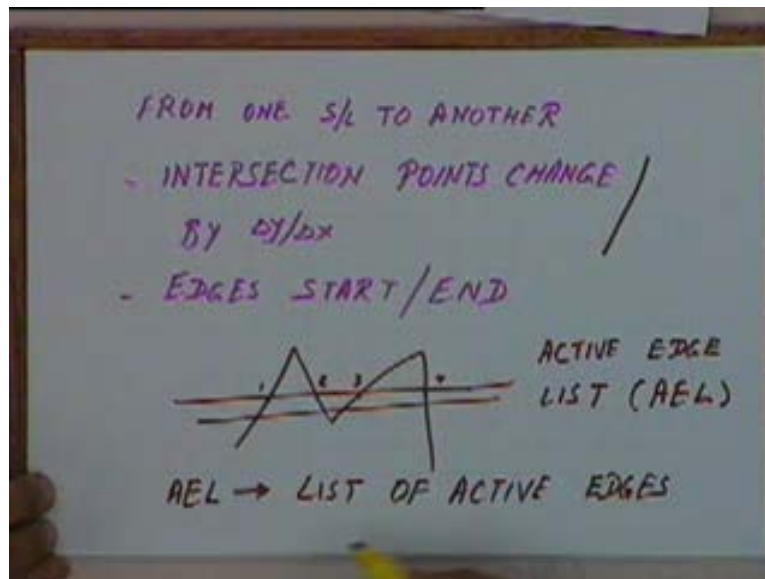 FROM ONE S/L TO ANOTHER
- INTERSECTION POINTS CHANGE
BY ΔY/ΔX
- EDGES START/END
1 2 3 4
ACTIVE EDGE
LIST (AEL)
AEL → LIST OF ACTIVE EDGES